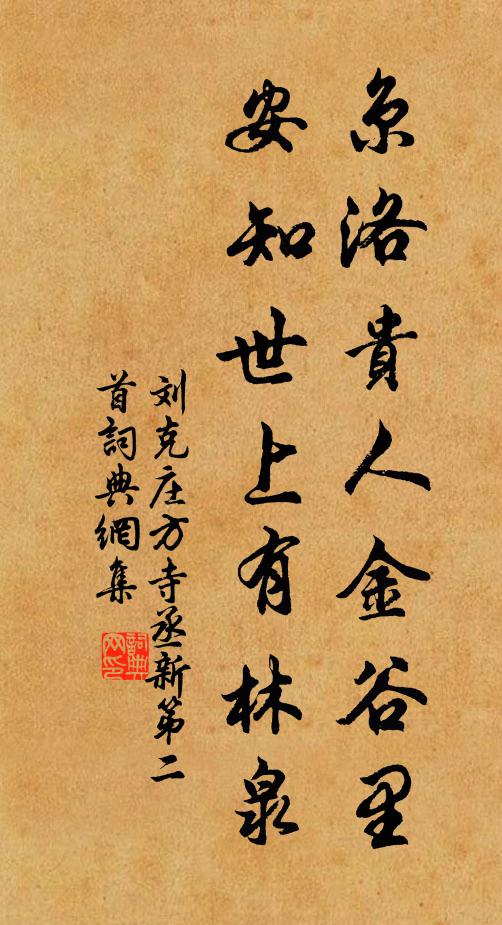 京洛貴人金谷里
安知世上有林泉
刘克庄方寺丞新第二
首詞典網集
詞典網印